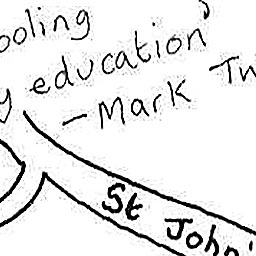 ooling
y education'
- Mark Tw
St John'